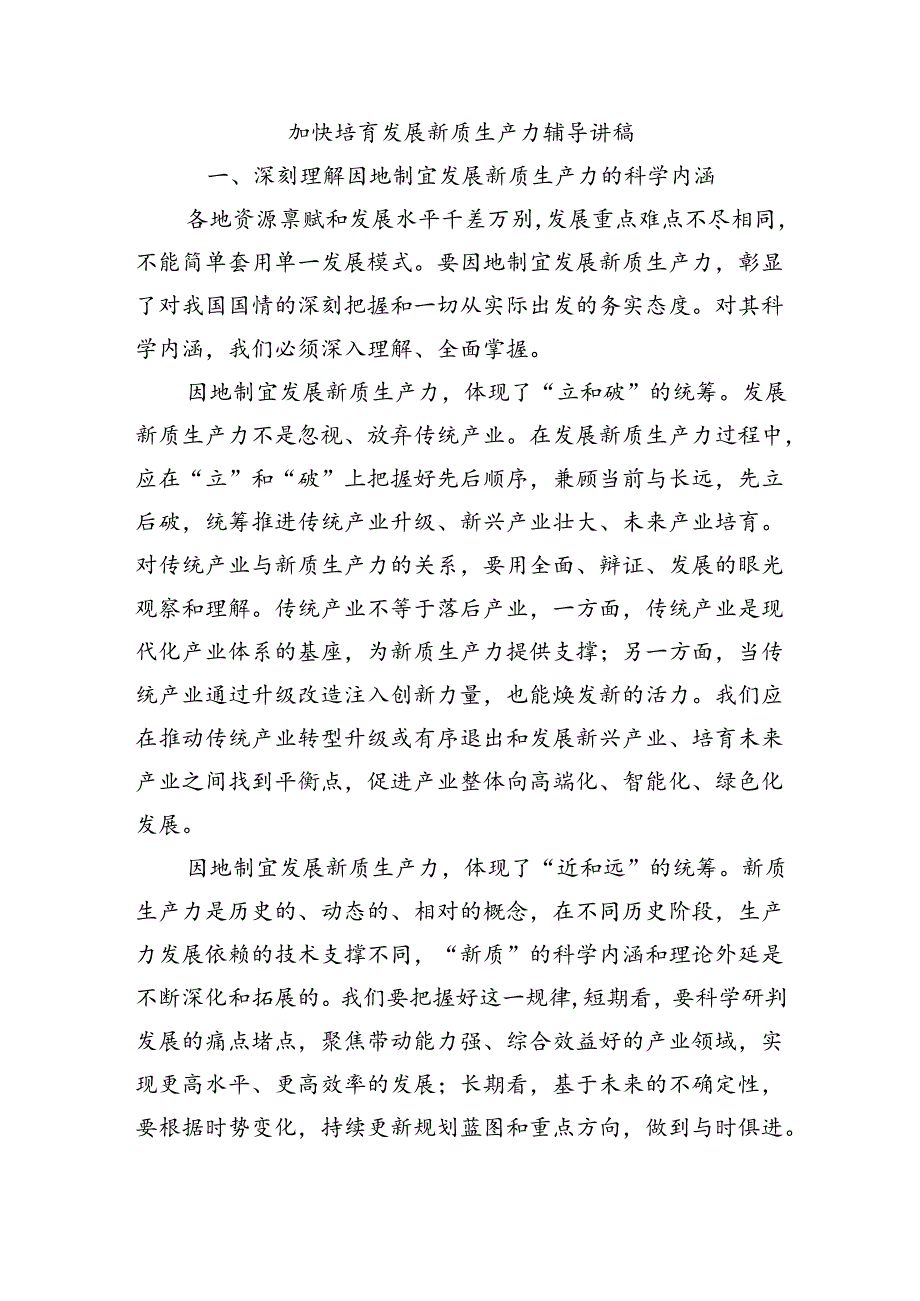 加快培育发展新质生产力辅导讲稿
一、深刻理解因地制宜发展新质生产力的科学内涵
各地资源禀赋和发展水平千差万别,发展重点难点不尽相同，
不能简单套用单一发展模式。要因地制宜发展新质生产力，彰显
了对我国国情的深刻把握和一切从实际出发的务实态度。对其科
学内涵，我们必须深入理解、全面掌握。
因地制宜发展新质生产力，体现了“立和破”的统筹。发展
新质生产力不是忽视、放弃传统产业。在发展新质生产力过程中，
应在“立”和“破”上把握好先后顺序，兼顾当前与长远，先立
后破，统筹推进传统产业升级、新兴产业壮大、未来产业培育。
对传统产业与新质生产力的关系，要用全面、辩证、发展的眼光
观察和理解。传统产业不等于落后产业，一方面，传统产业是现
代化产业体系的基座，为新质生产力提供支撑；另一方面，当传
统产业通过升级改造注入创新力量，也能焕发新的活力。我们应
在推动传统产业转型升级或有序退出和发展新兴产业、培育未来
产业之间找到平衡点，促进产业整体向高端化、智能化、绿色化
发展。
因地制宜发展新质生产力，体现了“近和远”的统筹。新质
生产力是历史的、动态的、相对的概念，在不同历史阶段，生产
力发展依赖的技术支撑不同，“新质”的科学内涵和理论外延是
不断深化和拓展的。我们要把握好这一规律,短期看，要科学研判
发展的痛点堵点，聚焦带动能力强、综合效益好的产业领域，实
现更高水平、更高效率的发展；长期看，基于未来的不确定性，
要根据时势变化，持续更新规划蓝图和重点方向，做到与时俱进。